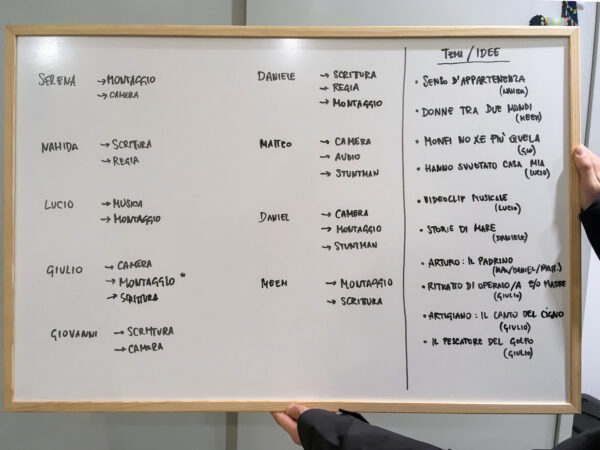 SERENA → MONTAGGIO
→ CAMERA
NAHIDA → SCRITURA
→ REGIA
LUCIO → MUSICA
→ MONTAGGIO
GIULIO → CAMERA
→ MONTAGGIO *
→ SCRITURA
GIOVANNI → SCRITURA
→ CAMERA
DANIELE → SCRITURA
→ REGIA
→ MONTAGGIO
MATTEO → CAMERA
→ AUDIO
→ STUNTMAN
DANIEL → CAMERA
→ MONTAGGIO
→ STUNTMAN
MEEM → MONTAGGIO
→ SCRITURA
TEMI / IDEE
• SENSO D'APPARTENENZA
(NAHIDA)
• DONNE TRA DUE MONDI
(MEEM)
• MONFI NO XE PIÙ QUELA
(GIO)
• HANNO SVUOTATO CASA MIA
(LUCIO)
• VIDEOCLIP MUSICALE
(LUCIO)
• STORIE DI MARE
(DANIELE)
• ARTURO: IL PADRINO
• RITRATTO DI OPERAIO/A E/O MADRE
(GIULIO)
• ARTIGIANO: IL CANTO DEL CIGNO
(GIULIO)
• IL PESCATORE DEL GOLFO
(GIULIO)